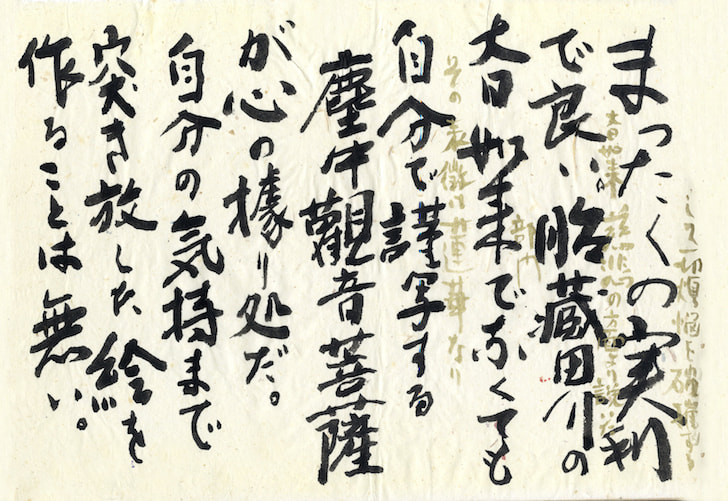 まったくの実利
で良い胎蔵界の
大日如来でなくても
自分で謹写する
塵中觀音菩薩
が心の據り処だ。
自分の気持まで
突き放した絵を
作ることは無い。
その表徴は蓮華なり